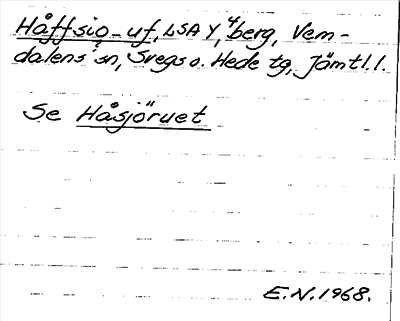 Håffsio-uf, LSA Y, 4 berg, Vem-
dalens sn, Svegs o. Hede tg, Jämtl.l.
Se Håsjöruet
E.N. 1968.